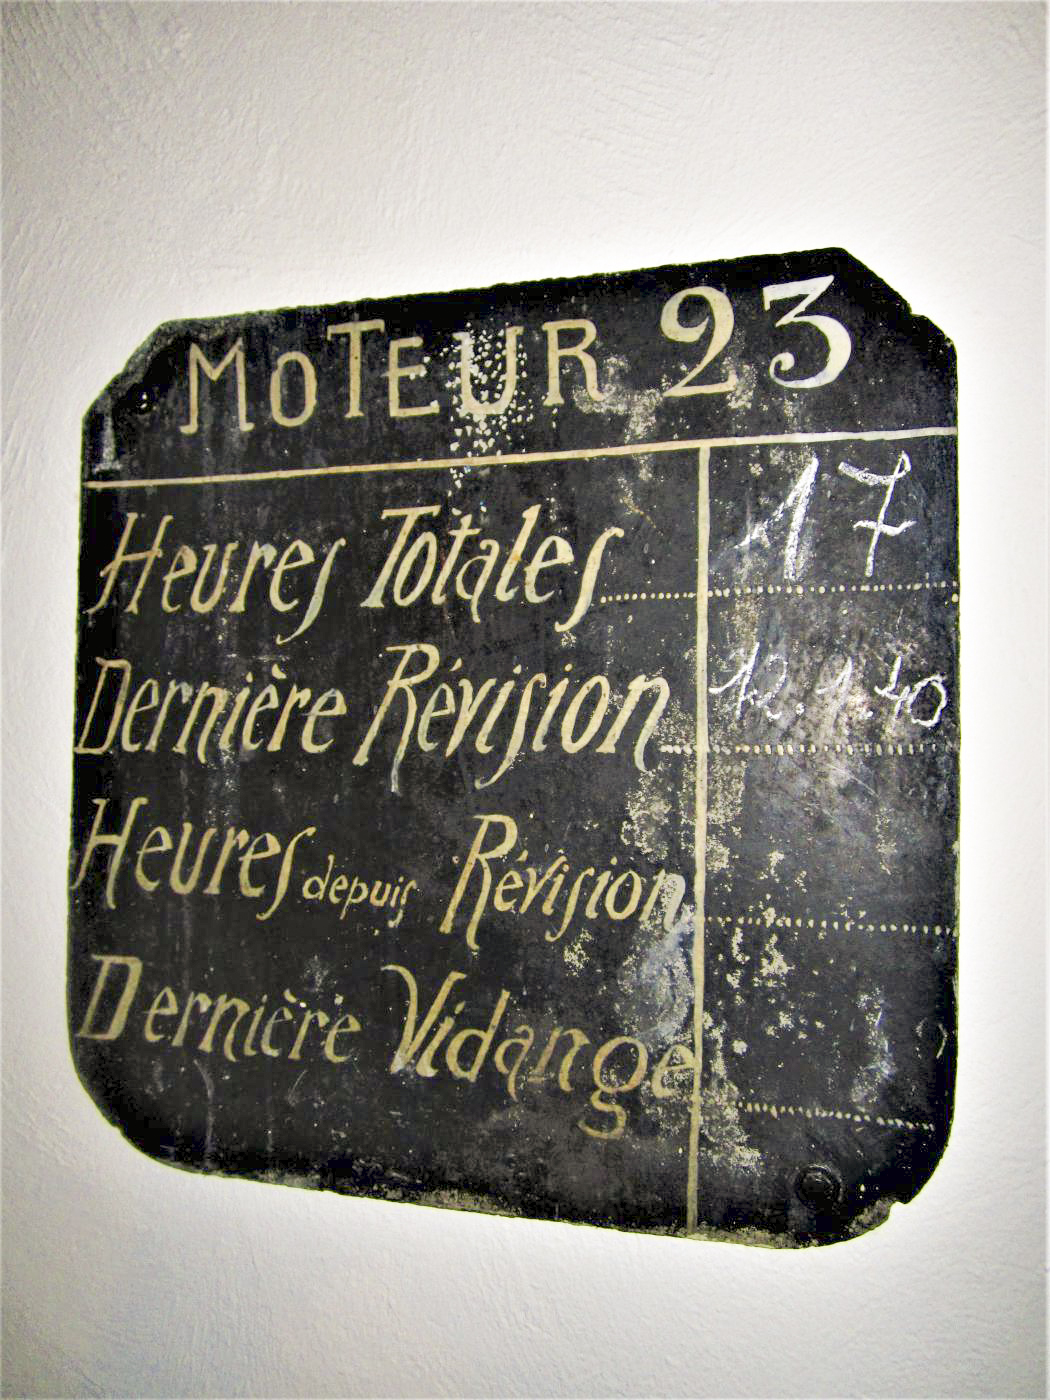 MOTEUR 23
Heures Totales 17
Dernière Révision 12.1.40
Heures depuis Révision
Dernière Vidange